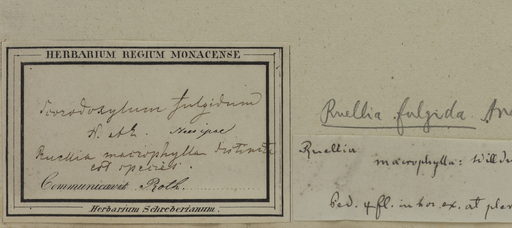 HERBARIUM REGIUM MONACENSE
fulgidum
N. ab E. Nees ipse
Ruellia macrophylla distincta
est species.
Communicavit Roth.
Herbarium Schreberianum.
Ruellia fulgida
Ruellia
macrophylla: Willd
Ped. 4 fl. in hor. ex. at